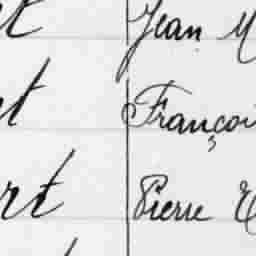 Jean M
Françoi
rt Pierre E